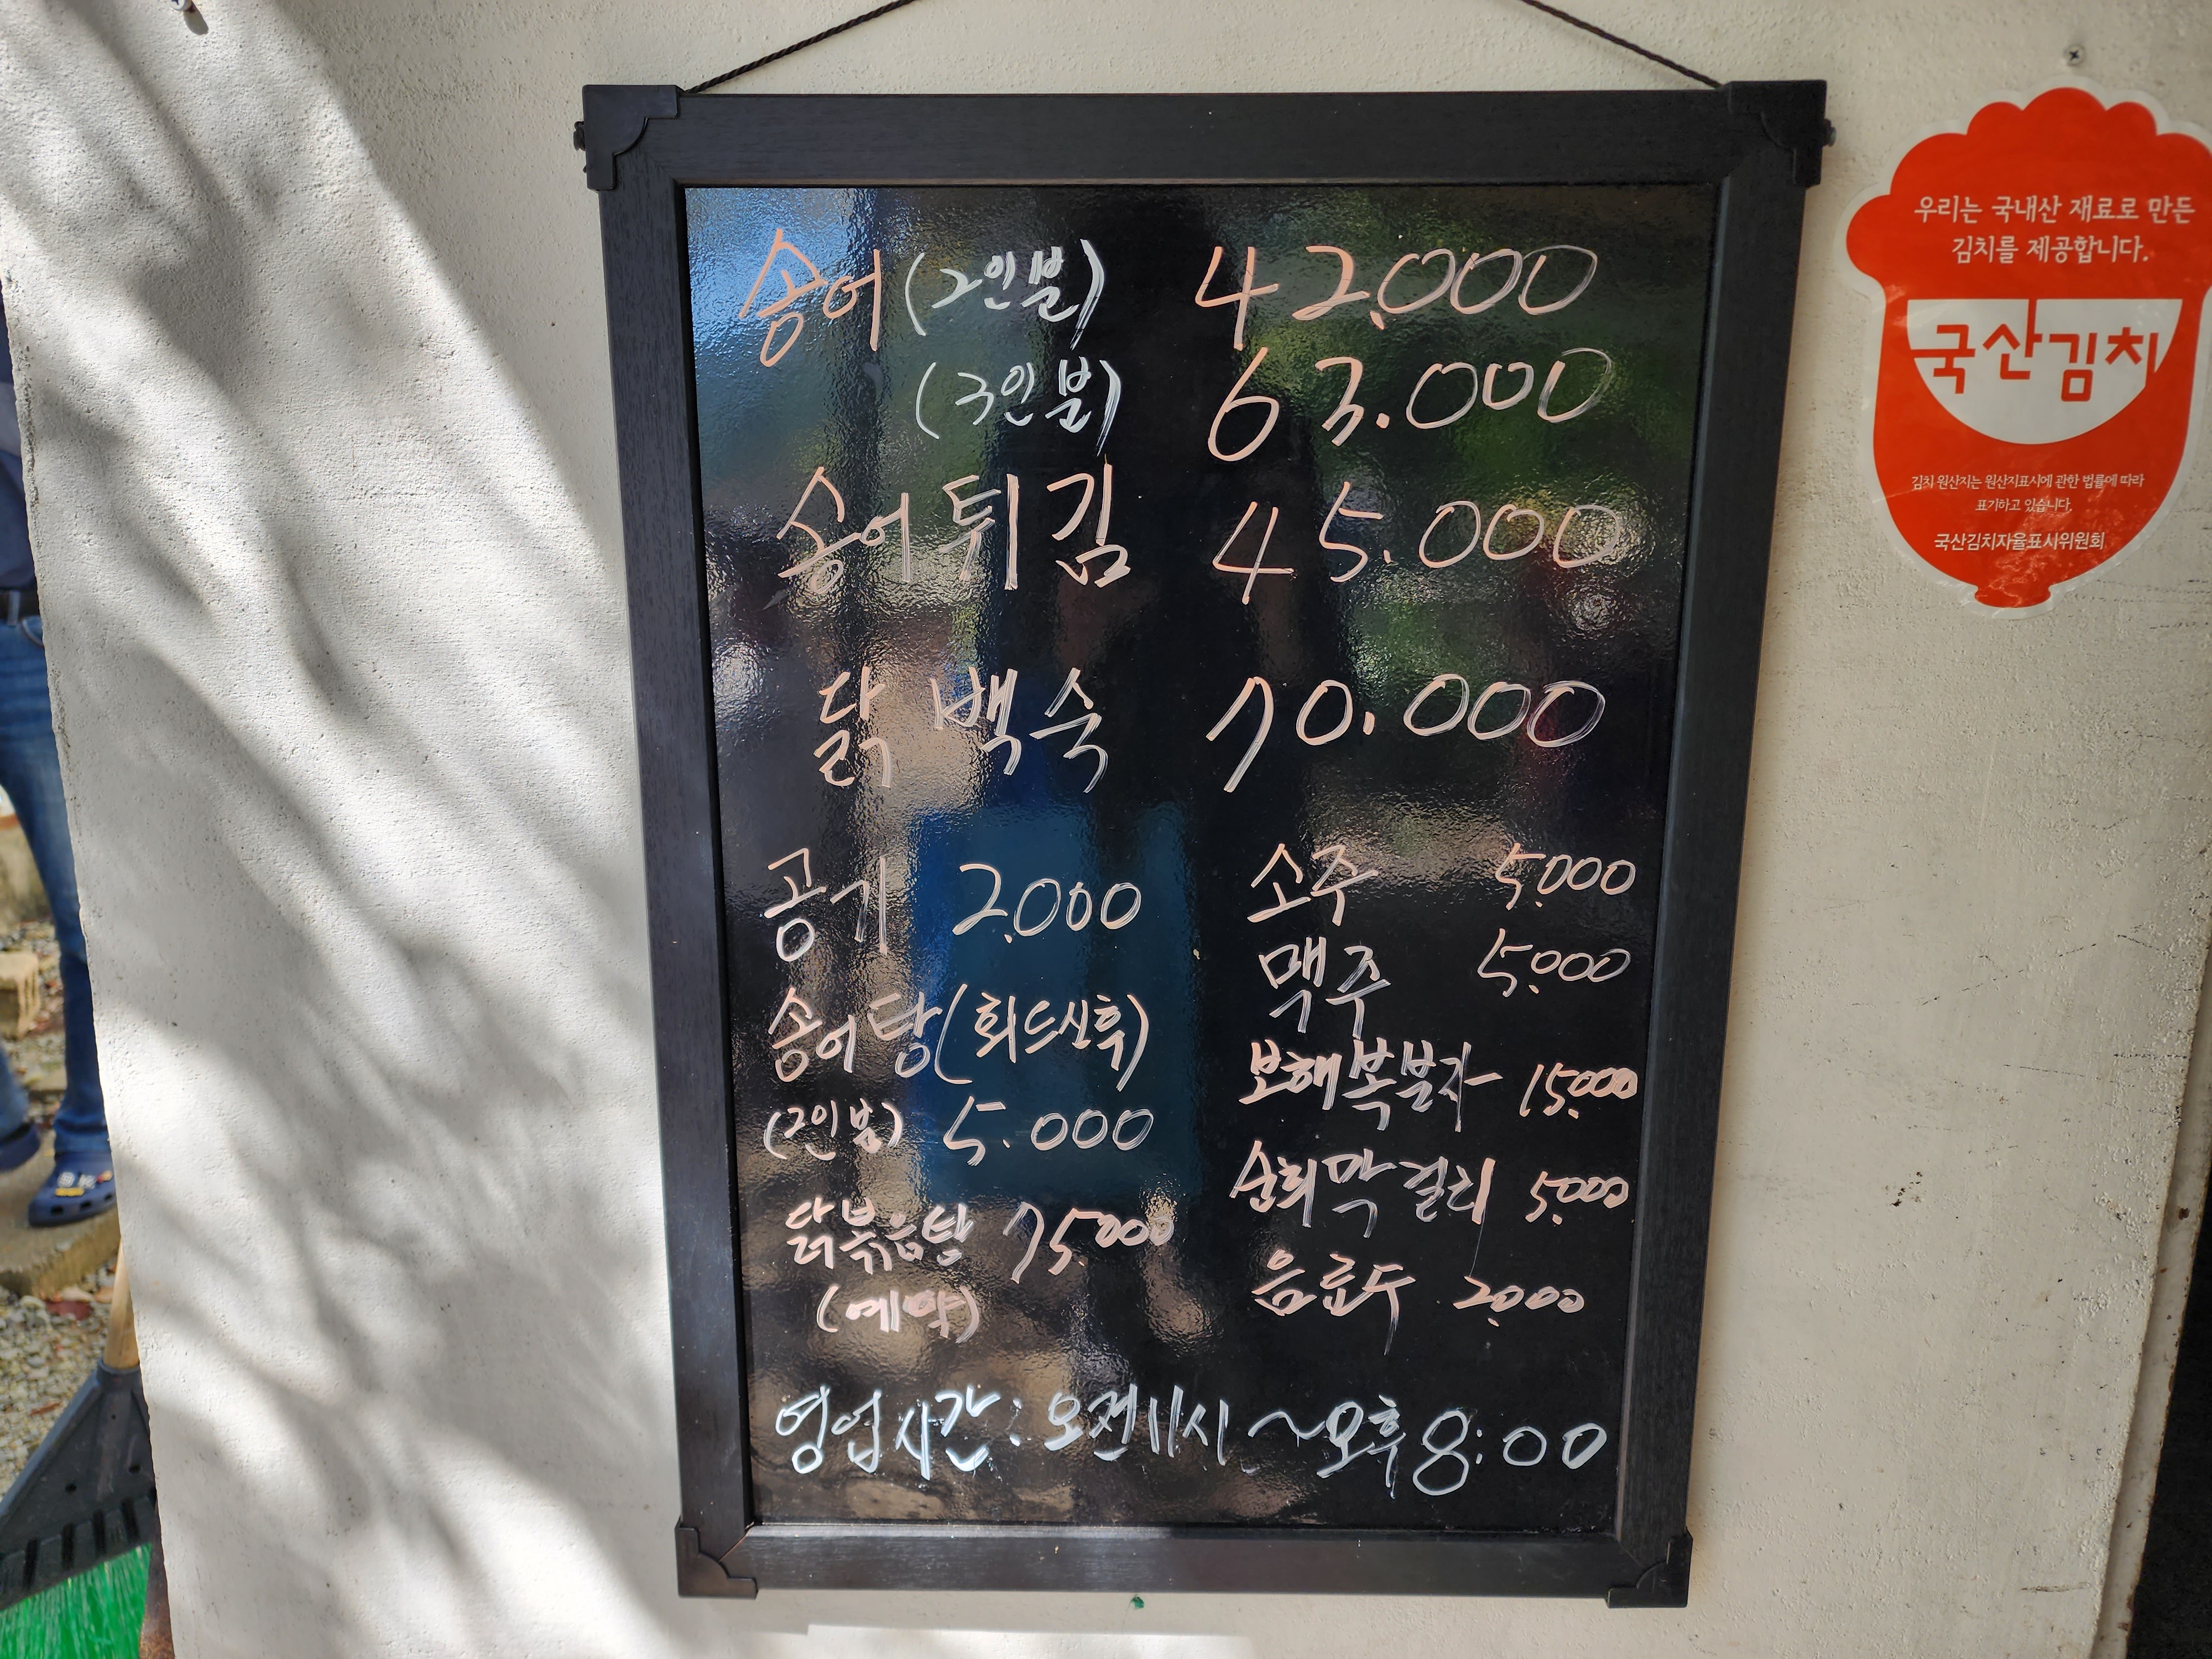 송어(2인분) 42.000
(3인분) 63.000
송어튀김 45.000
닭백숙 70.000
공기 2.000
송어탕(회드신후)
(2인분) 5.000
닭볶음탕 75.000
(예약)
소주 5.000
맥주 5.000
보해복분자 15.000
순희막걸리 5.000
음료수 2.000
영업시간: 오전11시~오후8:00
우리는 국내산 재료로 만든
김치를 제공합니다.
국산김치
김치 원산지는 원산지표시에 관한 법률에 따라
표기하고 있습니다.
국산김치자율표시위원회